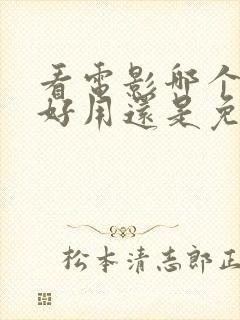 看電影哪个
好用還是免
松本清志郎正